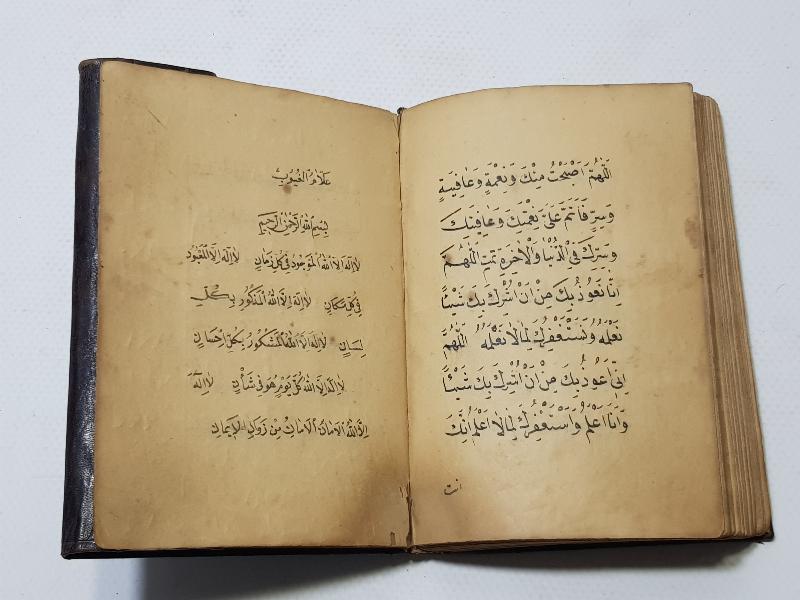 اَللّٰهُمَّ اَصْبَحْتُ مِنْكَ وَنِعْمَةٍ وَعَافِيَةٍ
وَسِتْرٍ فَاَتِمَّ عَلَىَّ نِعْمَتَكَ وَعَافِيَتَكَ
وَسِتْرَكَ فِى الدُّنْيَا وَالْاٰخِرَةِ تمت اَللّٰهُمَّ
اِنَّا نَعُوذُ بِكَ مِنْ اَنْ نُشْرِكَ بِكَ شَيْئًا
نَعْلَمُهُ وَنَسْتَغْفِرُكَ لِمَا لَا نَعْلَمُهُ اَللّٰهُمَّ
اِنِّى اَعُوذُ بِكَ مِنْ اَنْ اُشْرِكَ بِكَ شَيْئًا
وَاَنَا اَعْلَمُ وَاَسْتَغْفِرُكَ لِمَا لَا اَعْلَمُ اِنَّكَ
انت
عَلَّامُ الْغُيُوبِ
بِسْمِ اللّٰهِ الرَّحْمٰنِ الرَّحِيمِ
لَا اِلٰهَ اِلَّا اللّٰهُ الْمَوْجُودُ فِى كُلِّ زَمَانٍ لَا اِلٰهَ اِلَّا الْمَعْبُودُ
فِى كُلِّ مَكَانٍ لَا اِلٰهَ اِلَّا اللّٰهُ الْمَذْكُورُ بِكُلِّ
لِسَانٍ لَا اِلٰهَ اِلَّا اللّٰهُ الْمَشْكُورُ بِكُلِّ اِحْسَانٍ
لَا اِلٰهَ اِلَّا اللّٰهُ كُلَّ يَوْمٍ هُوَ فِى شَأْنٍ لَا اِلٰهَ
اِلَّا اللّٰهُ اَلْاَمَانُ اَلْاَمَانُ مِنْ زَوَالِ الْاِيمَانِ